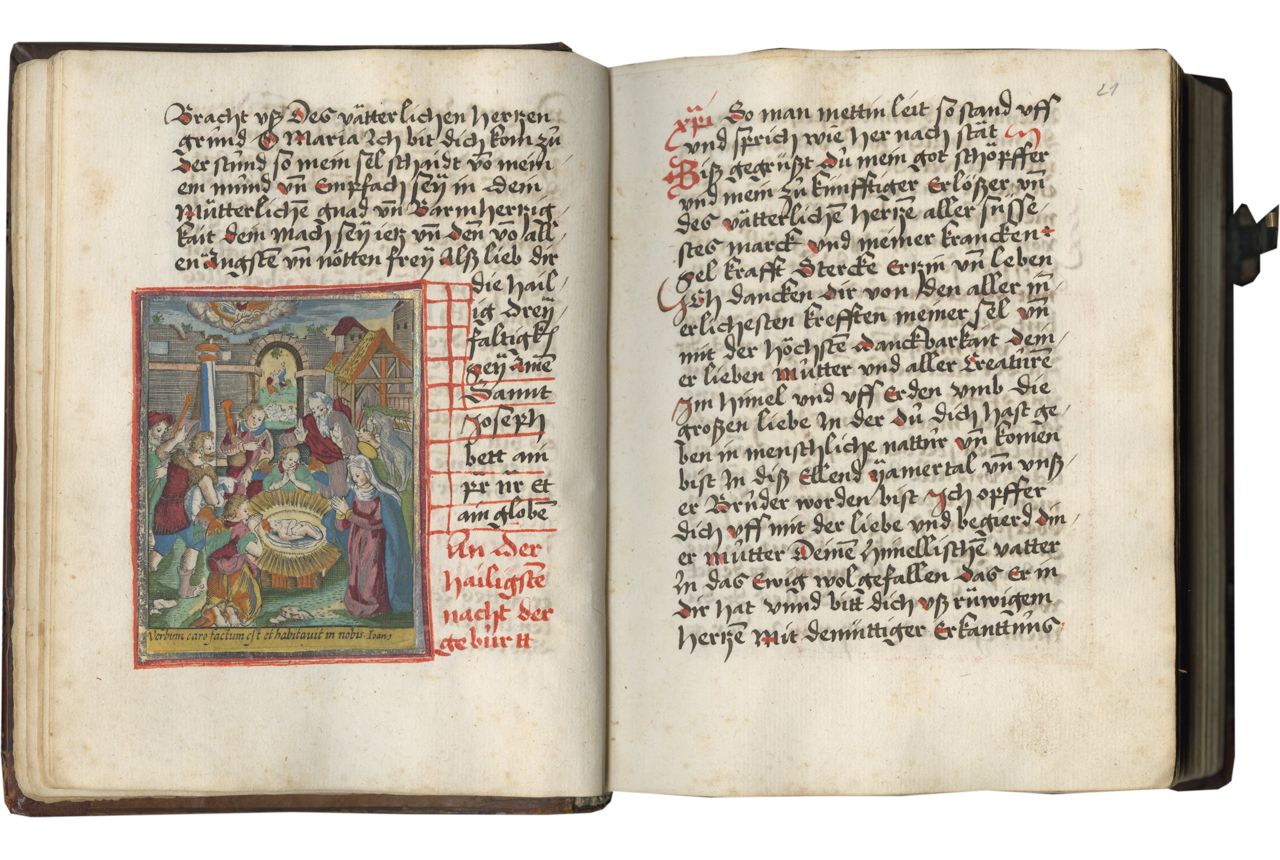 Bracht uß Des vätterlichen hertzen
grund O Maria Ich bit dich kom zů
Der stund so mein sel schaidt vō mein
em mund vn̄ Empfach seÿ in dem
Mütterlichē gnad vn̄ Barmhertzig
kait dem mach seÿ ietz vn̄ den vō all
en Ängstē vn̄ nötten freÿ Alß lieb dir
die hail
ig dreÿ
faltigk
seÿ Amē
Sannt
Joseph
bett ain
pr nr Et
ain globē
An der
hailigstē
nacht der
gebürtt
Verbum caro factum est et habitavit in nobis. Ioan.
21
xpi So man mettin leit so stand uff
und sprich wie her nach stät
Biß gegrüßt dů mein got schöpffer
und mein zů künfftiger Erlößer vn̄
des vätterlichē hertzē aller süsse
stes marck und meiner krancken
sel krafft Stercke Ertzin vn̄ leben
Ich dancken dir von den aller in̄
erlichesten krefften meiner sel vn̄
mit der höchstē danckbarkait dein
er lieben Mütter und aller Creaturē
Im himel und uff Erden umb die
großen liebe In der dů dich hast ge
ben in menschliche nattůr vn̄ komen
bist In diß Ellend jamertal vn̄ unß
er Brůder worden bist Ich opffer
dich uff mit der liebe und begierd din
er Mütter Deinē himellischē vatter
In das Ewig wolgefallen das Er in
dir hat vnnd bitt dich uß rüwigem
hertzē Mit demüttiger Erkanttnus